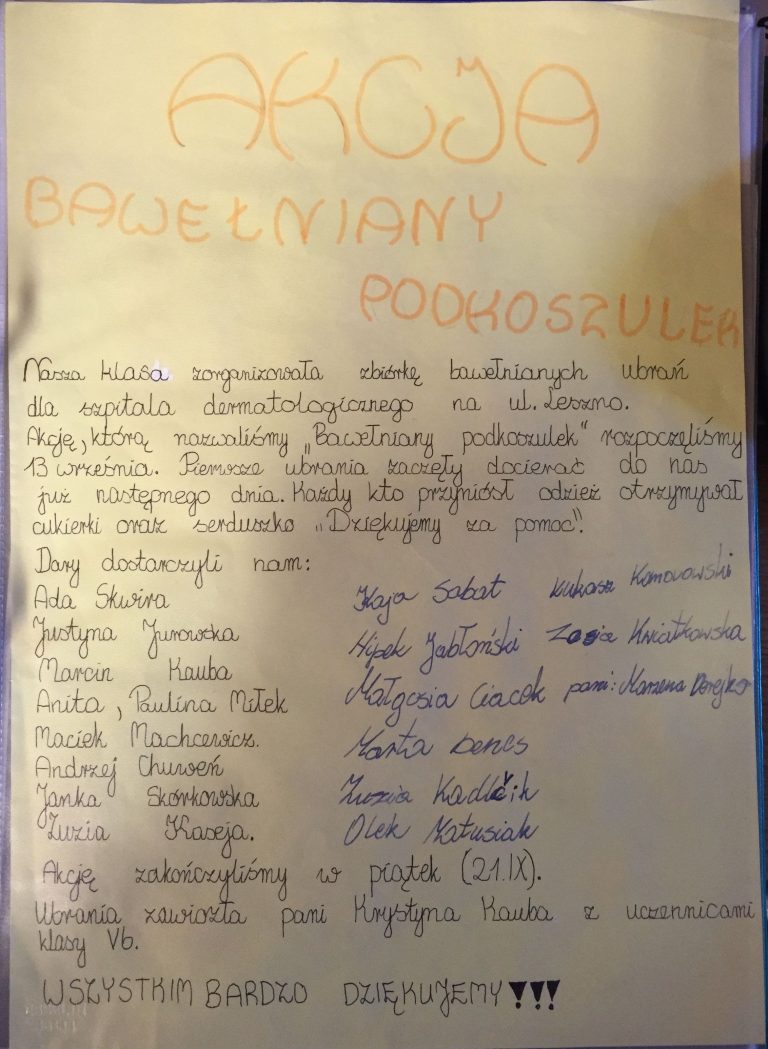 AKCJA
BAWEŁNIANY
PODKOSZULEK
Nasza klasa zorganizowała zbiórkę bawełnianych ubrań
dla szpitala dermatologicznego na ul. Leszno.
Akcję, którą nazwaliśmy „Bawełniany podkoszulek" rozpoczęliśmy
13 września. Pierwsze ubrania zaczęły docierać do nas
już następnego dnia. Każdy kto przyniósł odzież otrzymywał
cukierki oraz serduszko „Dziękujemy za pomoc".
Dary dostarczyli nam:
Ada Skwira Kaja Sabat Łukasz Komorowski
Justyna Jurowska Hipek Jabłoński Zosia Kwiatkowska
Marcin Kauba
Anita, Paulina Miłek Małgosia Ciacek pani: Marzena
Maciek Machcewicz. Marta Denes
Andrzej Chuweń
Janka Skórkowska Zuzia Kadlčik
Zuzia Kaseja. Olek Matusiak
Akcję zakończyliśmy w piątek (21.IX).
Ubrania zawiozła pani Krystyna Kauba z uczennicami
klasy Vb.
WSZYSTKIM BARDZO DZIĘKUJEMY!!!